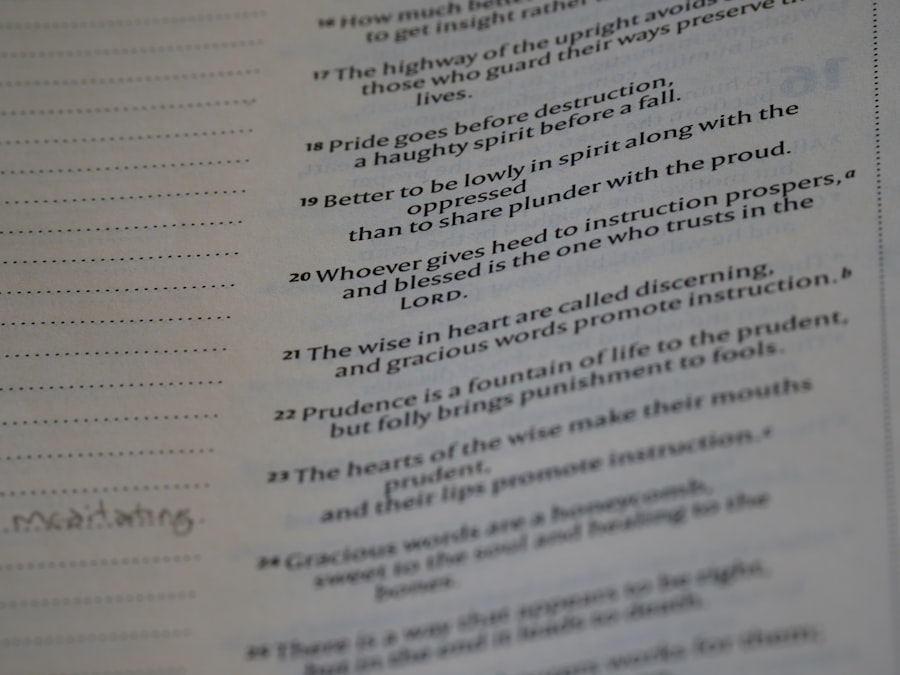 16 How much better
to get insight rather
17 The highway of the upright avoids
those who guard their ways preserve
lives.
18 Pride goes before destruction,
a haughty spirit before a fall.
19 Better to be lowly in spirit along with the
oppressed
than to share plunder with the proud.
20 Whoever gives heed to instruction prospers,a
and blessed is the one who trusts in the
LORD.
21 The wise in heart are called discerning,
and gracious words promote instruction.b
22 Prudence is a fountain of life to the prudent,
but folly brings punishment to fools.
23 The hearts of the wise make their mouths
prudent,
and their lips promote instruction.c
24 Gracious words are a honeycomb,
sweet to the soul and healing to the
bones.
25 There is a way that appears to be right,
but in the end it leads to death.
works for them;
16